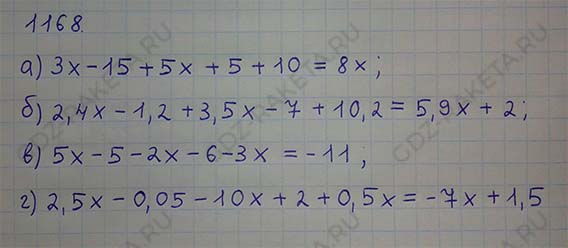 1168.
а) 3x-15+5x+5+10=8x;
б) 2,4x-1,2+3,5x-7+10,2=5,9x+2;
в) 5x-5-2x-6-3x=-11;
г) 2,5x-0,05-10x+2+0,5x=-7x+1,5
GDZ-RAKETA.RU
GDZ-RAKETA.RU
GDZ-RAKETA.RU